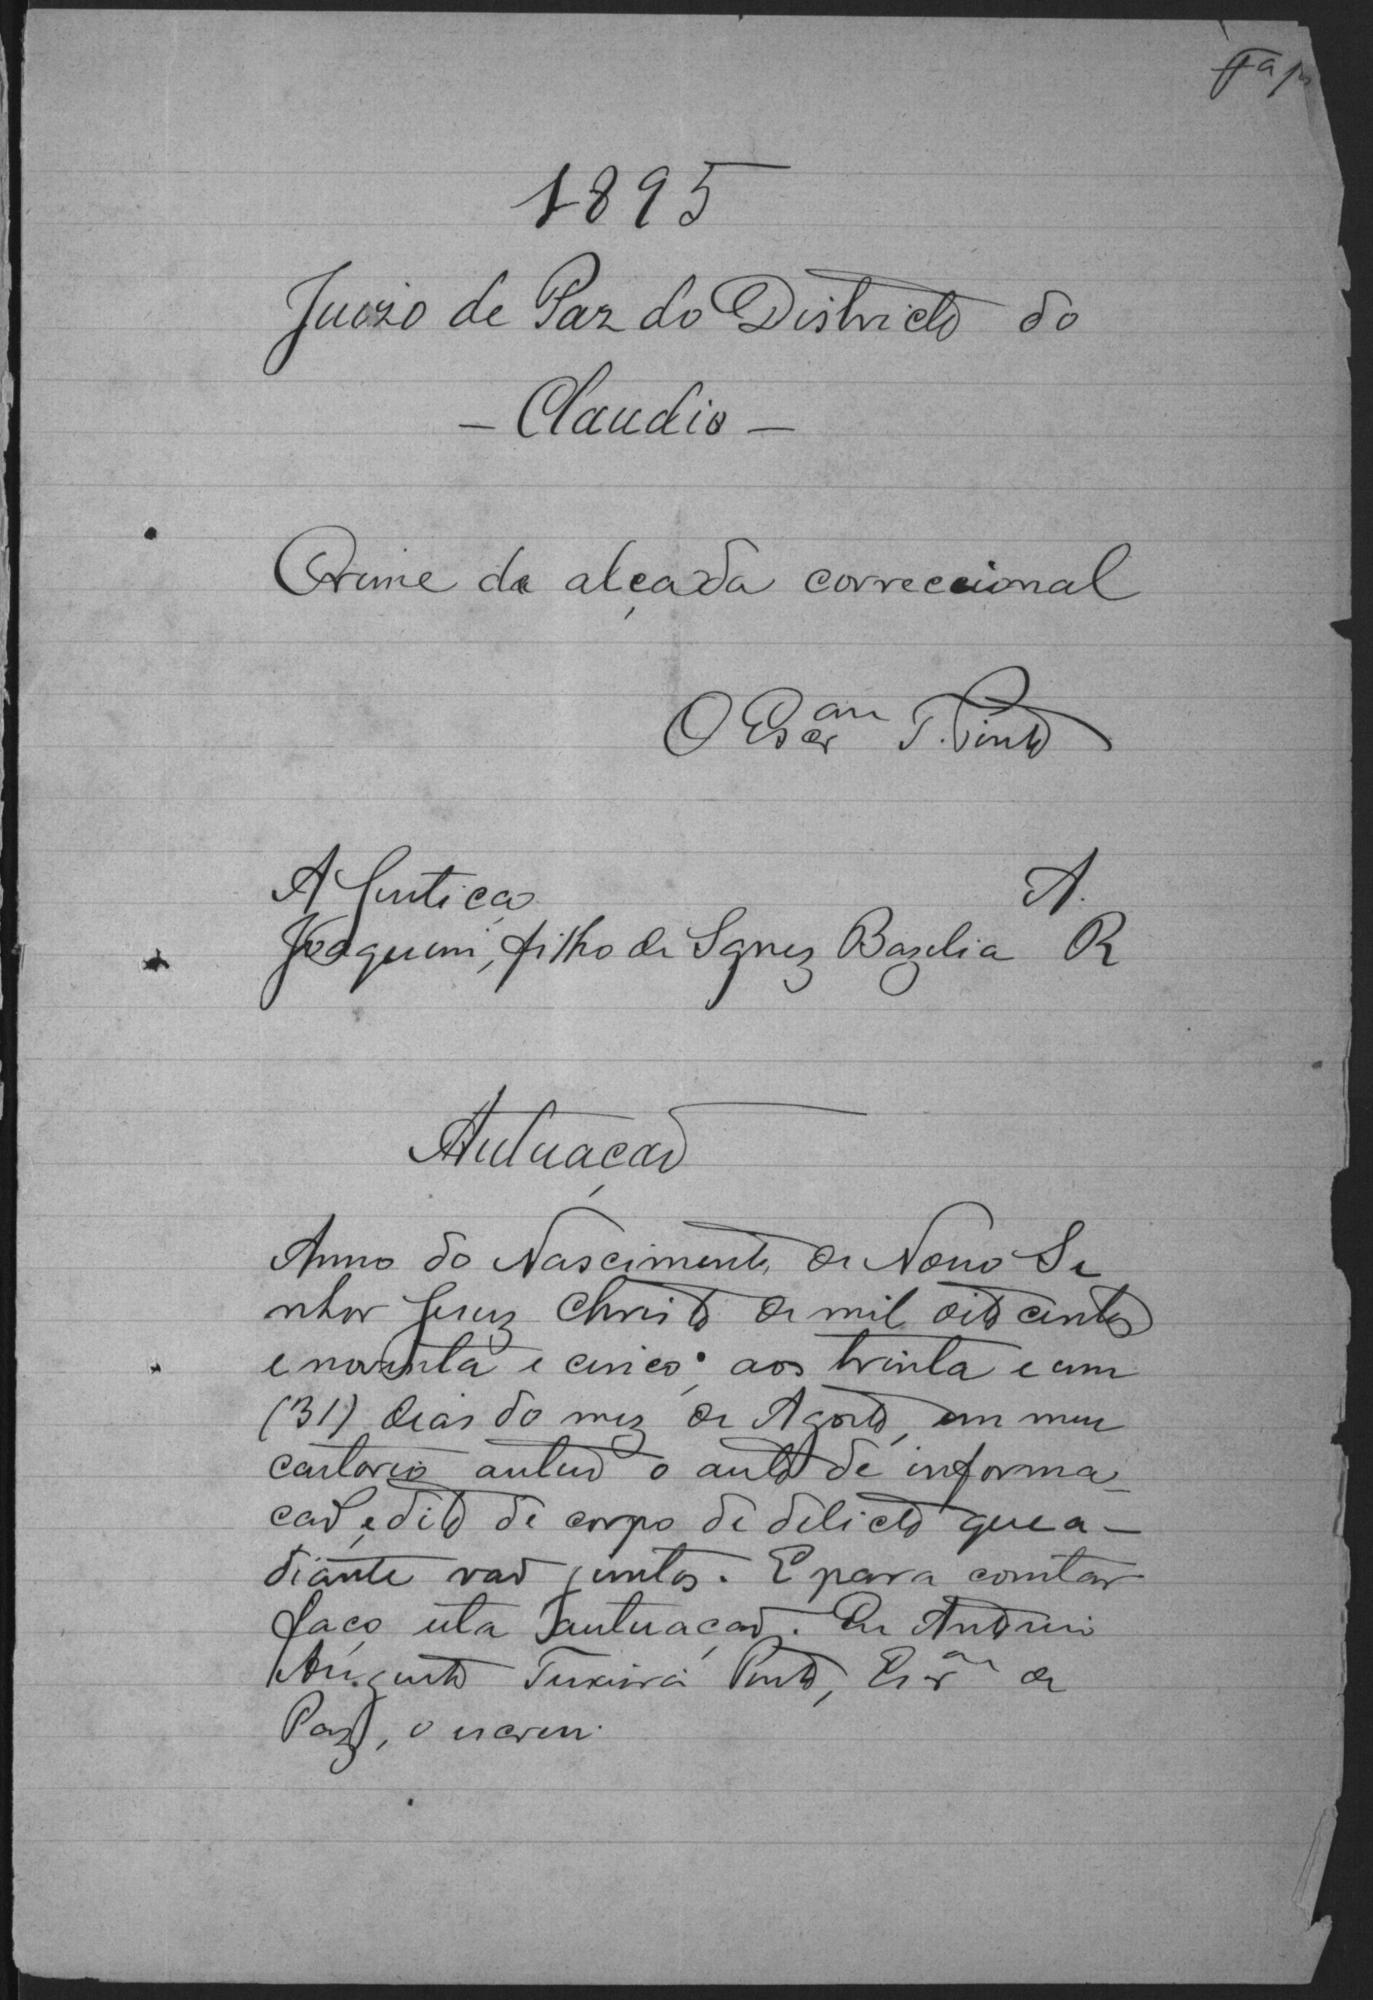 1895
Juizo de Paz do Districto do
- Claudio -
Crime da alçada correccional
O Escram T. Pinto
A Justiça A.
Joaquim, filho de Ignez Bazelia R
Autuação
Anno do Nascimento de Nosso Se
nhor Jesuz Christo de mil oitocentos
e noventa e cinco, aos trinta e um
(31) dias do mez de Agosto, em meu
cartorio autuo o auto de informa-
ção, e dito de corpo de delicto que a-
diante vão juntos. E para constar
faço esta autuação. Eu Antonio
Augusto Teixeira Pinto, Escram de
Paz, o escrevi.